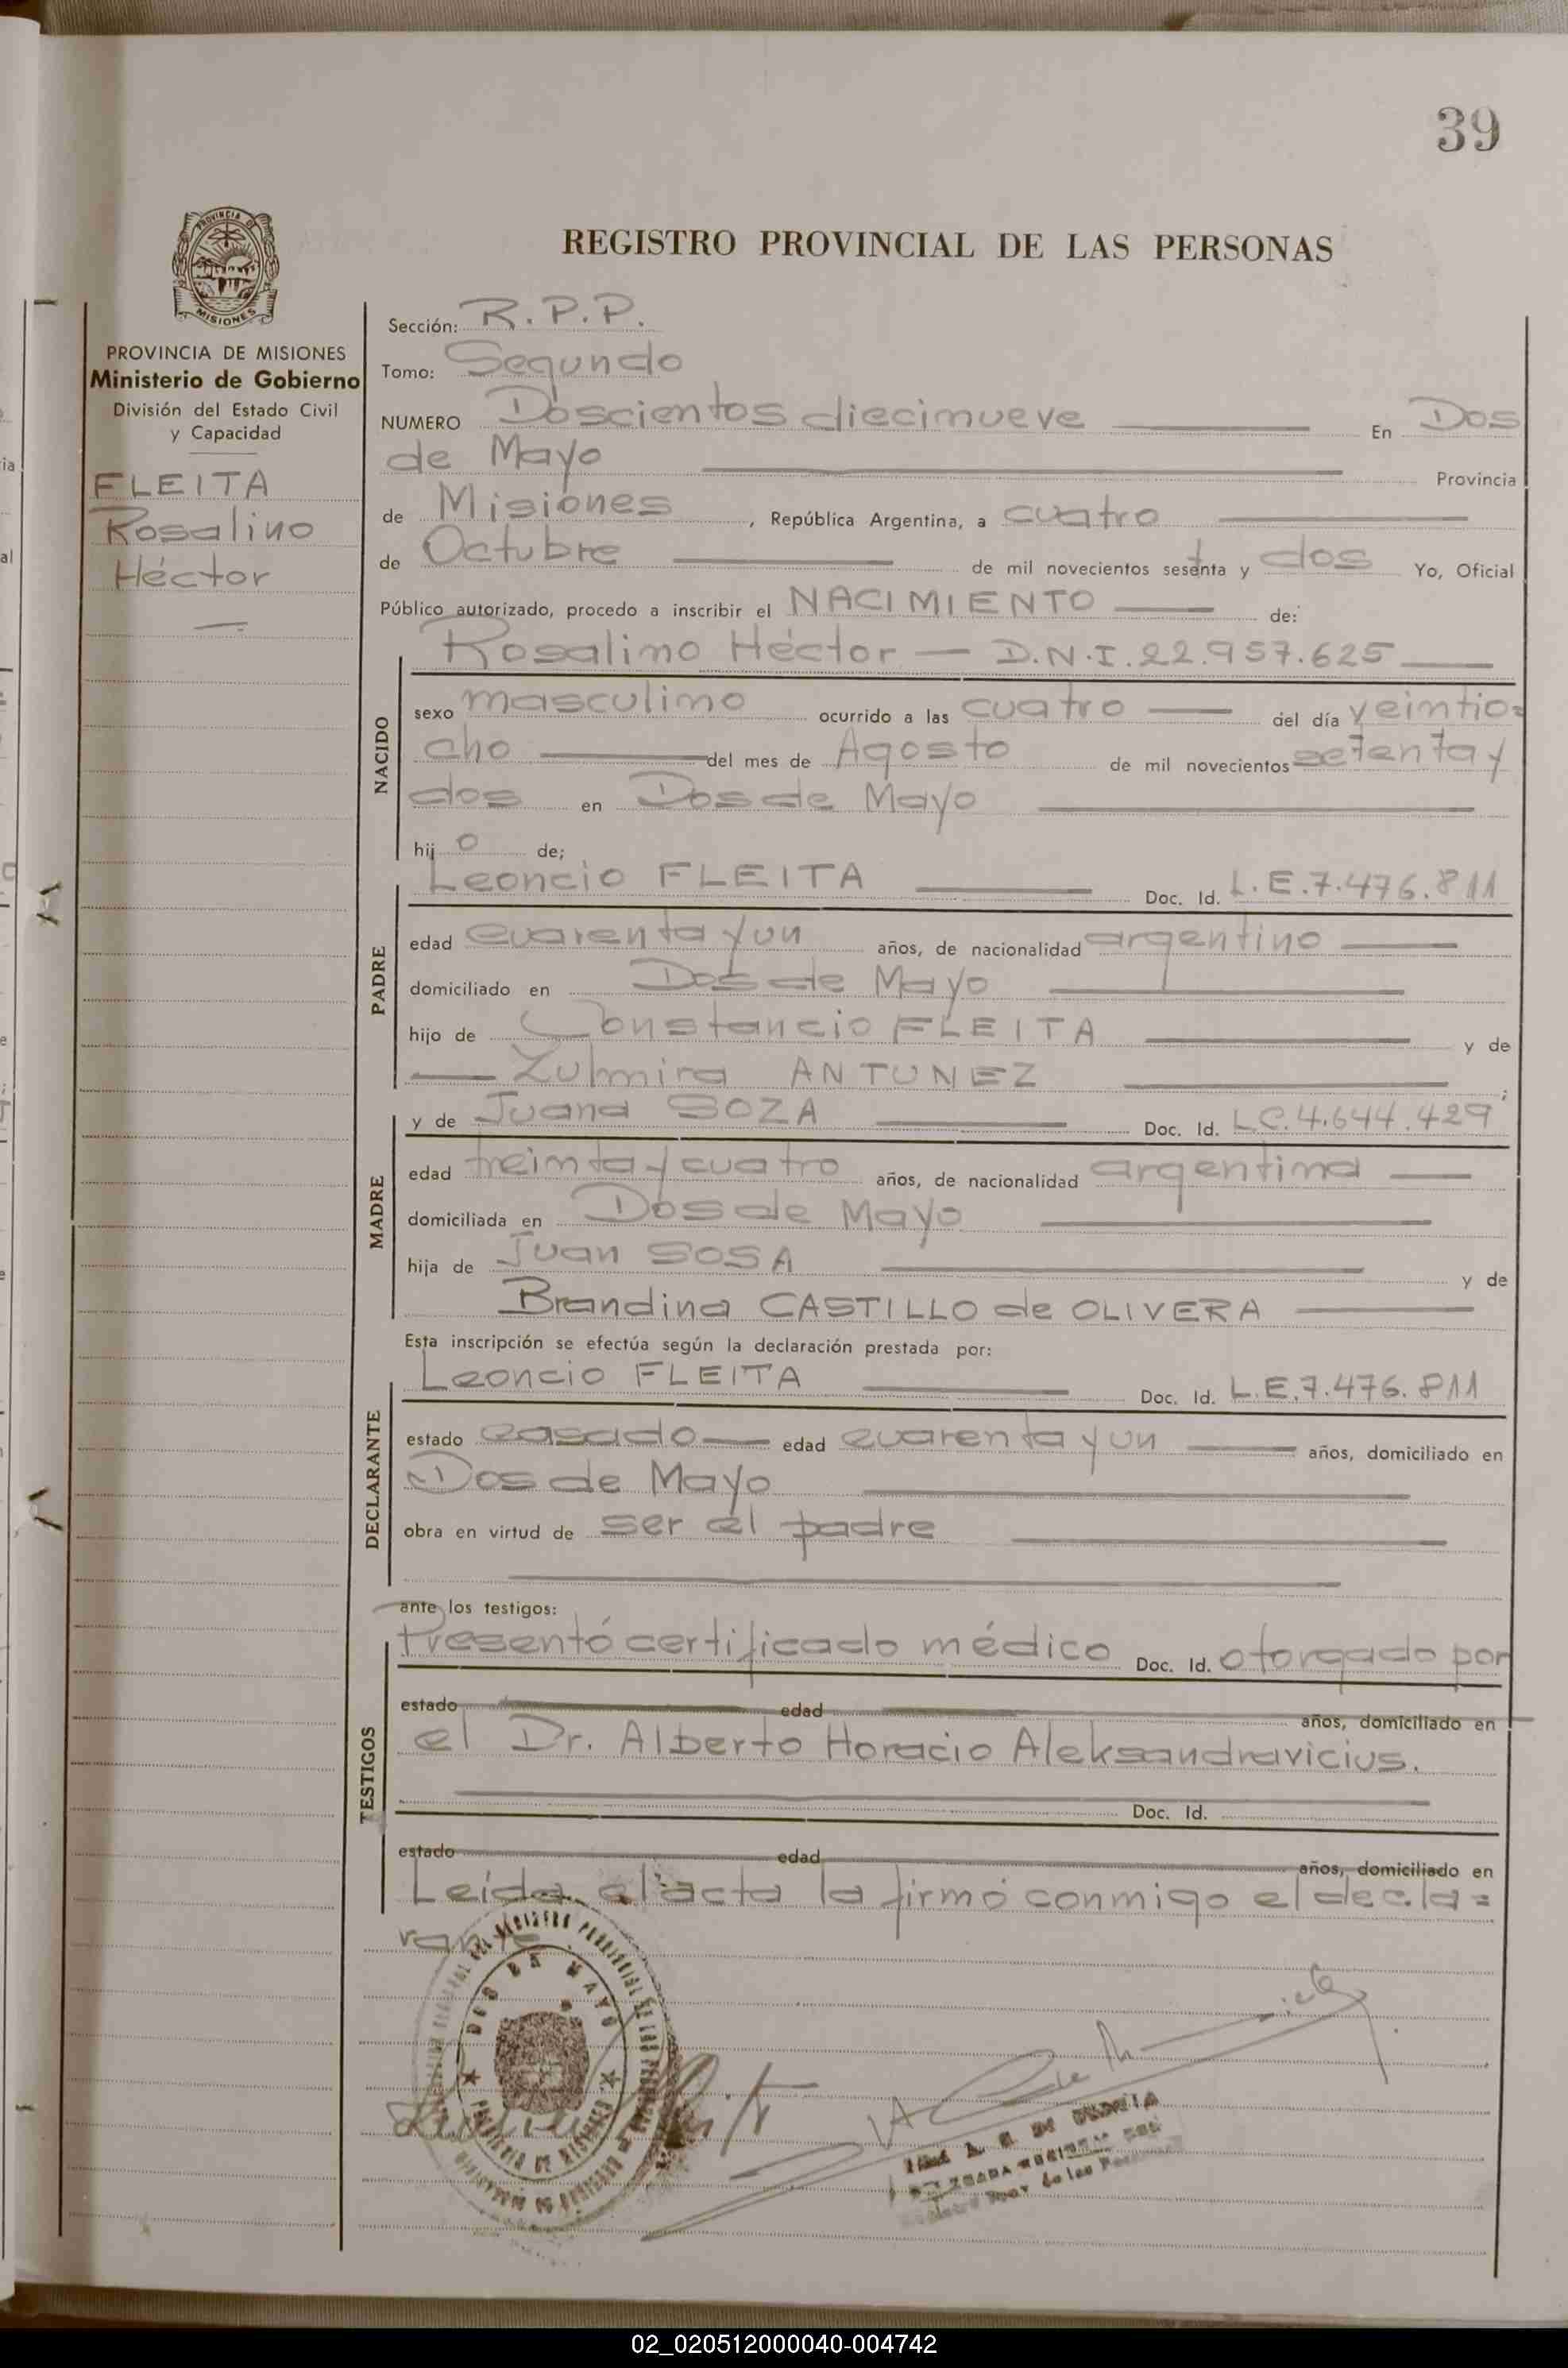 39
REGISTRO PROVINCIAL DE LAS PERSONAS
PROVINCIA DE
MISIONES
PROVINCIA DE MISIONES
Ministerio de Gobierno
División del Estado Civil
y Capacidad
FLEITA
Rosalino
Héctor
Sección: R.P.P.
Tomo: Segundo
NUMERO Doscientos diecinueve En Dos
de Mayo Provincia
de Misiones, República Argentina, a cuatro
de Octubre de mil novecientos setenta y dos Yo, Oficial
Público autorizado, procedo a inscribir el NACIMIENTO de:
Rosalino Héctor — D.N.I. 22.957.625
NACIDO
sexo masculino ocurrido a las cuatro del día veintio=
cho del mes de Agosto de mil novecientos setenta y
dos en Dos de Mayo
hijo de;
PADRE
Leoncio FLEITA Doc. Id. L.E.7.476.811
edad cuarenta y un años, de nacionalidad argentino
domiciliado en Dos de Mayo
hijo de Constancio FLEITA y de
Zulmira ANTUNEZ ;
MADRE
y de Juana SOZA Doc. Id. L.C.4.644.429
edad treinta y cuatro años, de nacionalidad argentina
domiciliada en Dos de Mayo
hija de Juan SOSA y de
Brandina CASTILLO de OLIVERA
Esta inscripción se efectúa según la declaración prestada por:
DECLARANTE
Leoncio FLEITA Doc. Id. L.E.7.476.811
estado casado edad cuarenta y un años, domiciliado en
Dos de Mayo
obra en virtud de ser el padre
ante los testigos:
TESTIGOS
Presentó certificado médico Doc. Id. otorgado por
estado edad años, domiciliado en
el Dr. Alberto Horacio Aleksandravicius.
Doc. Id.
estado edad años, domiciliado en
Leída el acta la firmó conmigo el decla=
rante
DOS DE MAYO
PROVINCIA DE MISIONES
02_020512000040-004742